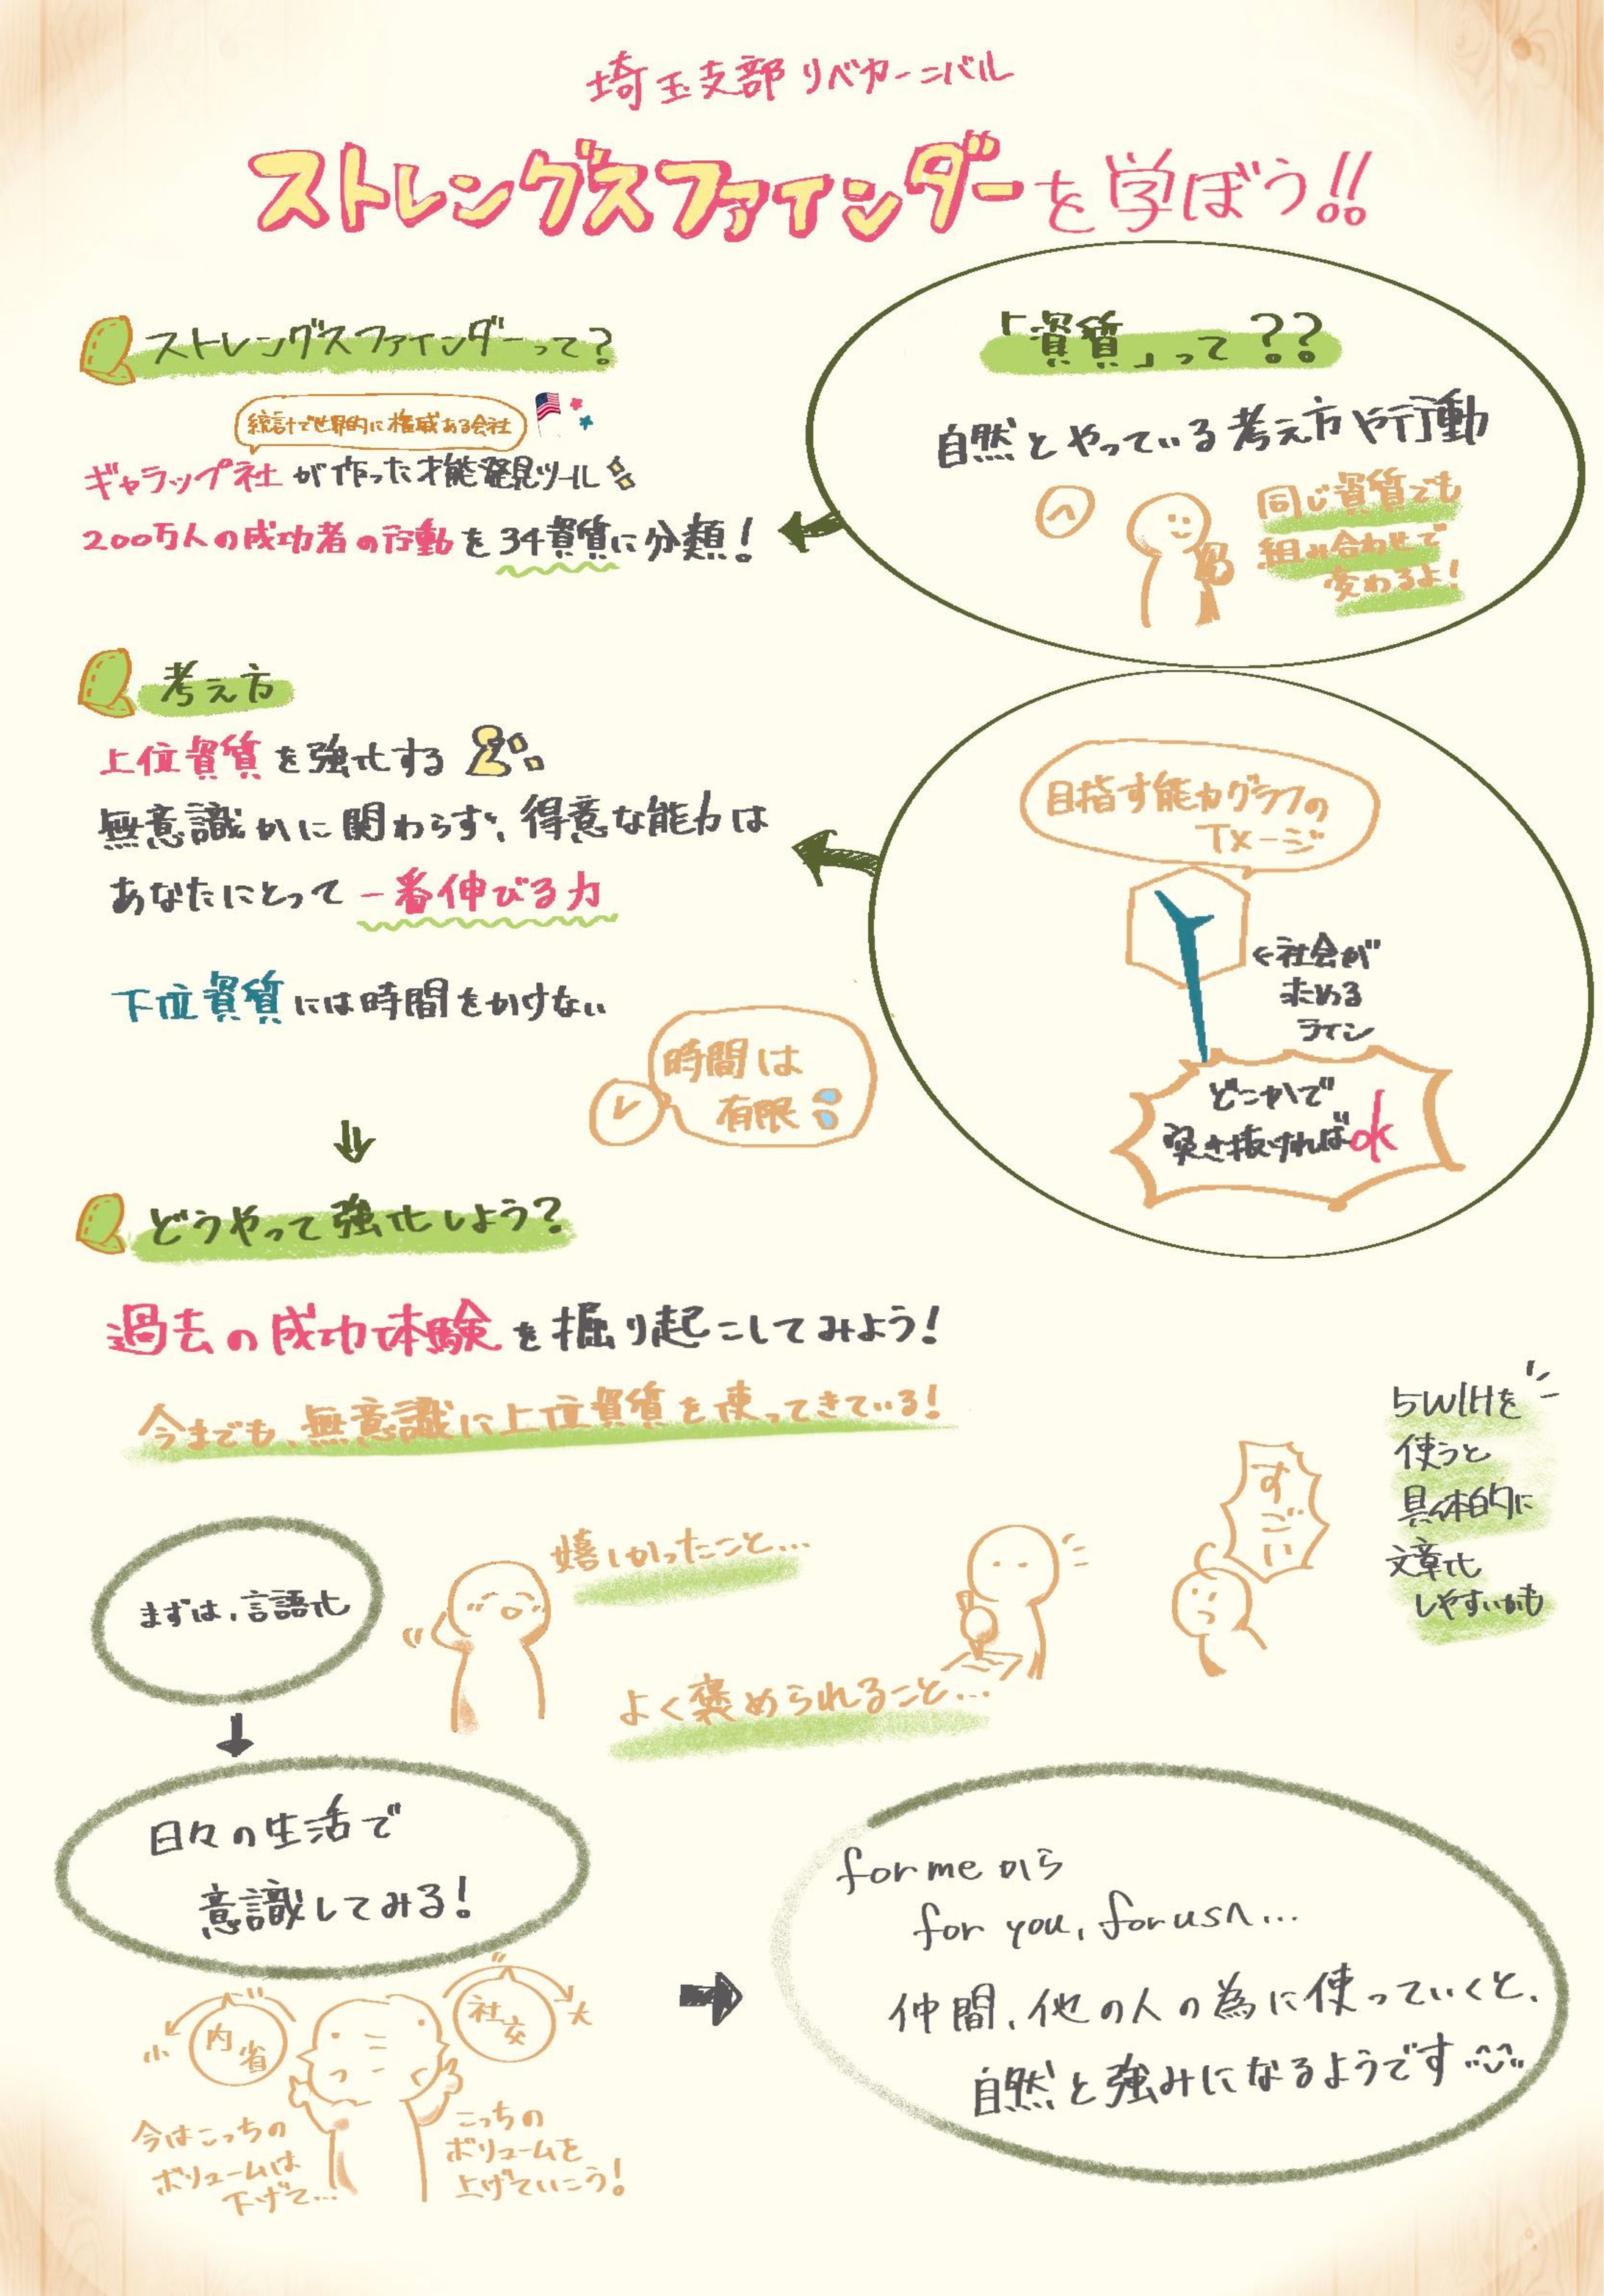 埼玉支部 リベカーニバル
ストレングスファインダーを学ぼう!!
ストレングスファインダーって?
統計で世界的に権威ある会社
ギャラップ社が作った才能発見ツール
200万人の成功者の行動を34資質に分類!
「資質」って??
自然とやっている考え方や行動
同じ資質でも
組み合わせで
変わるよ!
考え方
上位資質を強化する
無意識かに関わらず、得意な能力は
あなたにとって一番伸びる力
下位資質には時間をかけない
時間は
有限
目指す能力グラフの
イメージ
←社会が
求める
ライン
どこかで
突き抜ければok
どうやって強化しよう?
過去の成功体験を掘り起こしてみよう!
今までも、無意識に上位資質を使ってきている!
まずは、言語化
嬉しかったこと…
よく褒められること…
すごい
5W1Hを
使うと
具体的に
文章化
しやすいかも
日々の生活で
意識してみる!
小
内省
社交
大
今はこっちの
ボリュームは
下げて…
こっちの
ボリュームを
上げていこう!
for meから
for you, for usへ…
仲間、他の人の為に使っていくと、
自然と強みになるようです